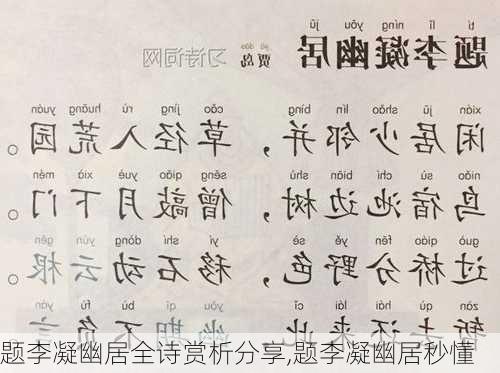 tí lǐ níng yōu jū
题李凝幽居
jiǎ dǎo
贾岛 习诗词网
xián jū shǎo lín bìng cǎo jìng rù huāng yuán
闲居少邻并，草径入荒园。
niǎo sù chí biān shù sēng qiāo yuè xià mén
鸟宿池边树，僧敲月下门。
guò qiáo fēn yě sè yí shí dòng yún gēn
过桥分野色，移石动云根。
zàn qù hái lái cǐ yōu qī bú fù yán
暂去还来此，幽期不负言
题李凝幽居全诗赏析分享,题李凝幽居秒懂